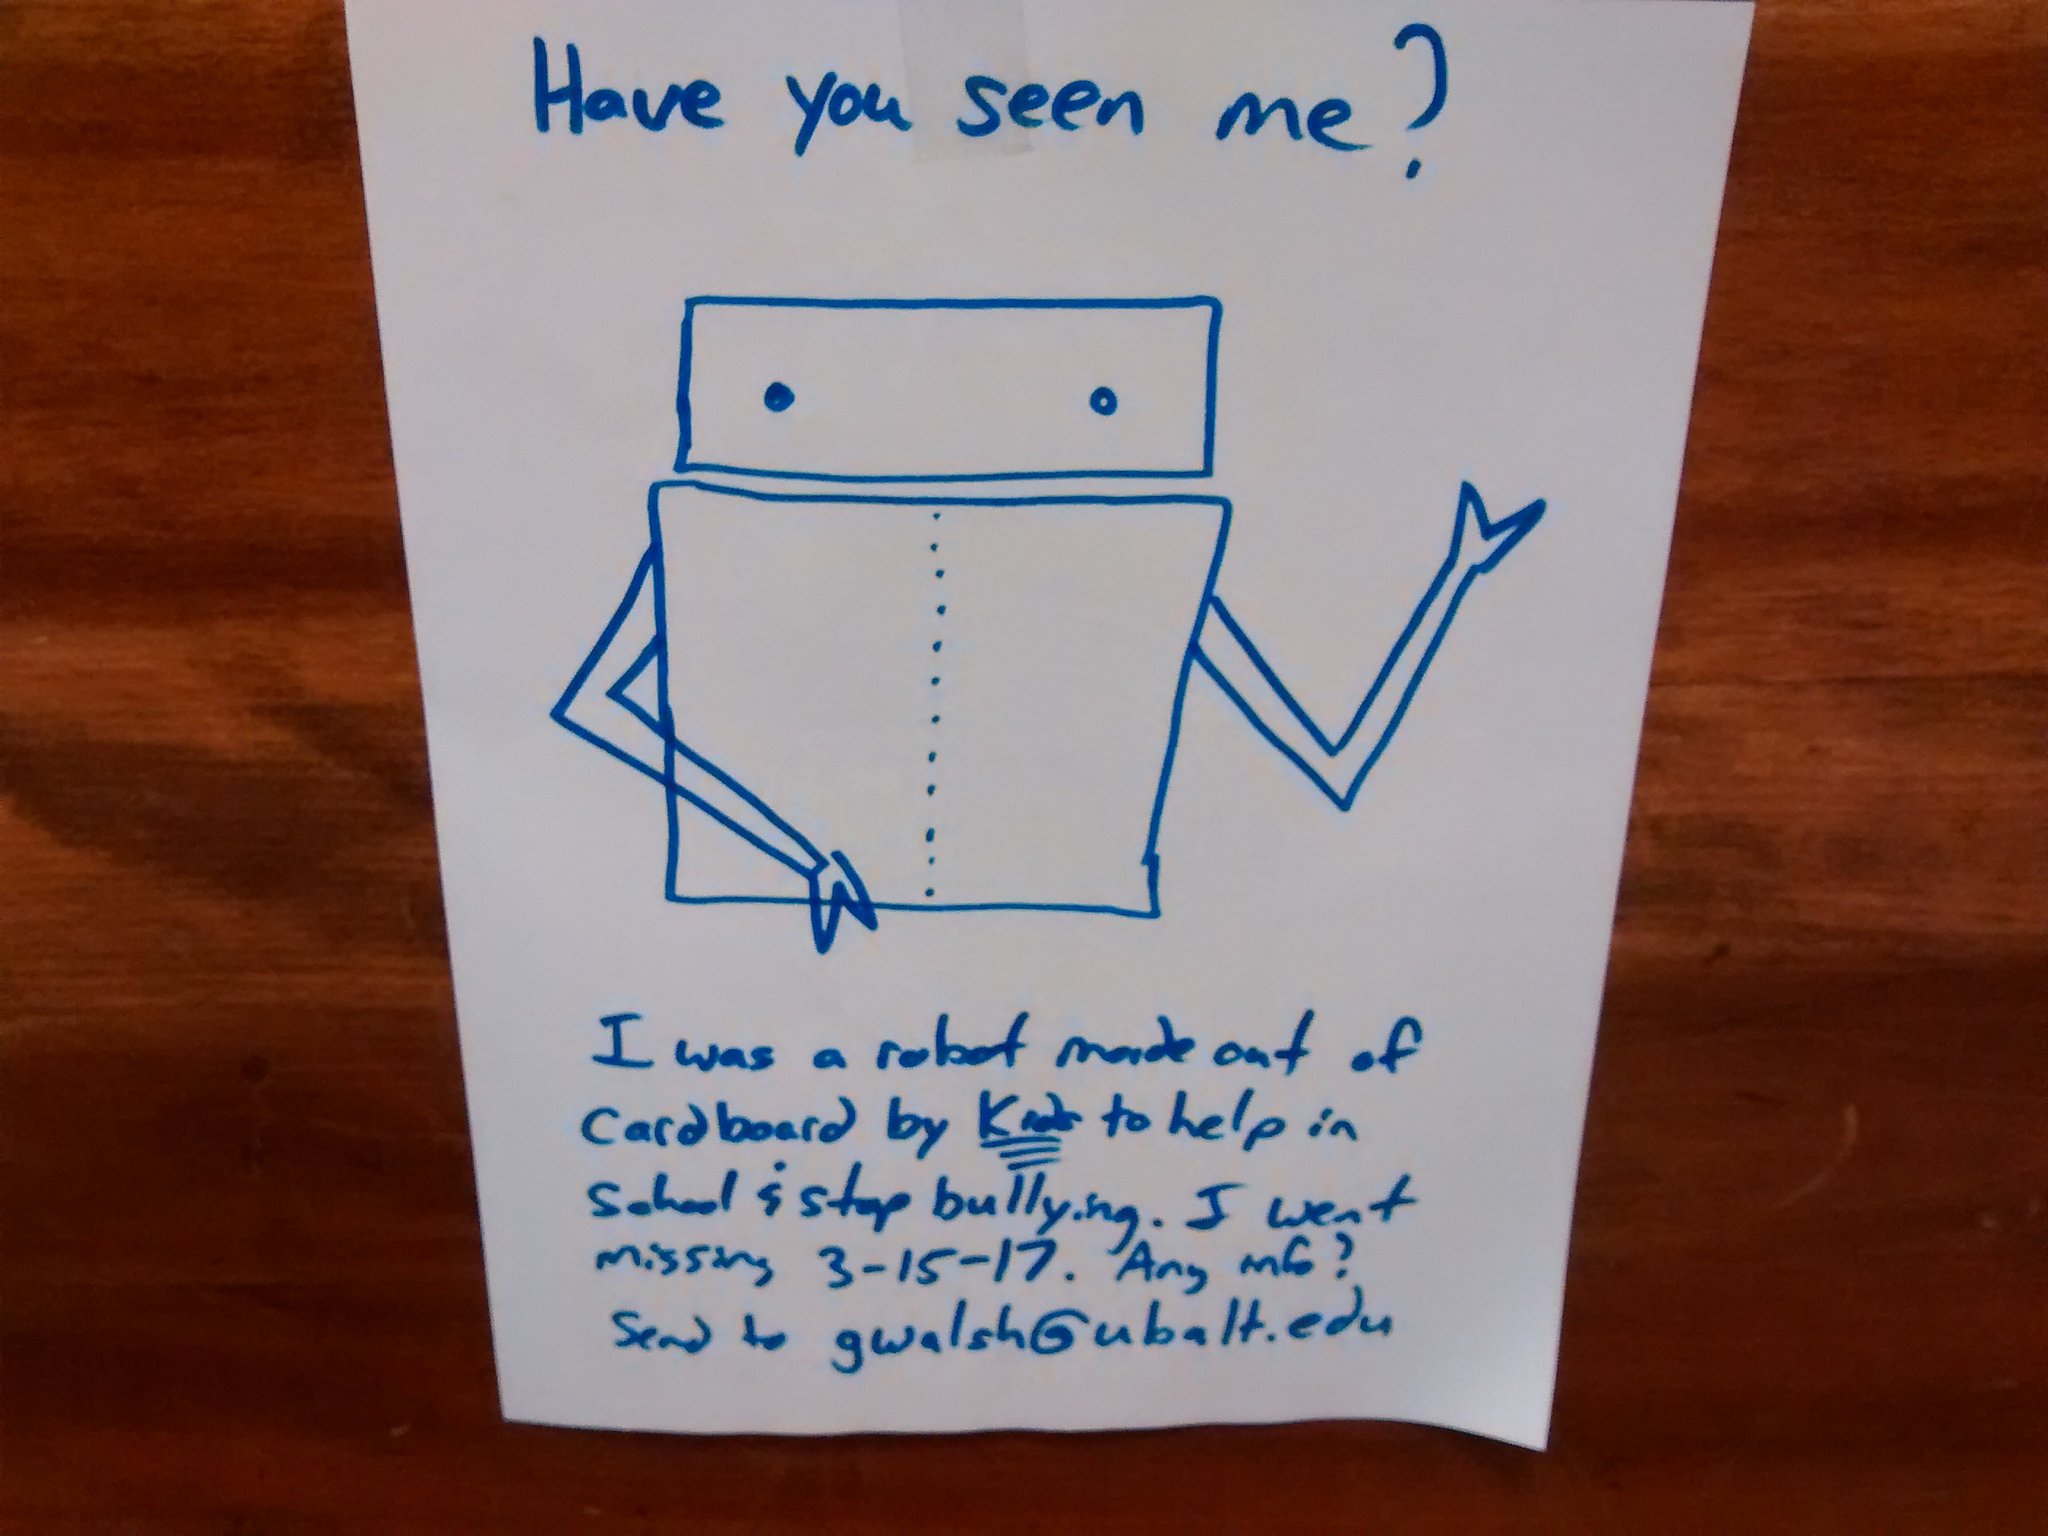 Have you seen me?
I was a robot made out of
Cardboard by Kids to help in
School & stop bullying. I went
missing 3-15-17. Any info?
Send to gwalsh@ubalt.edu